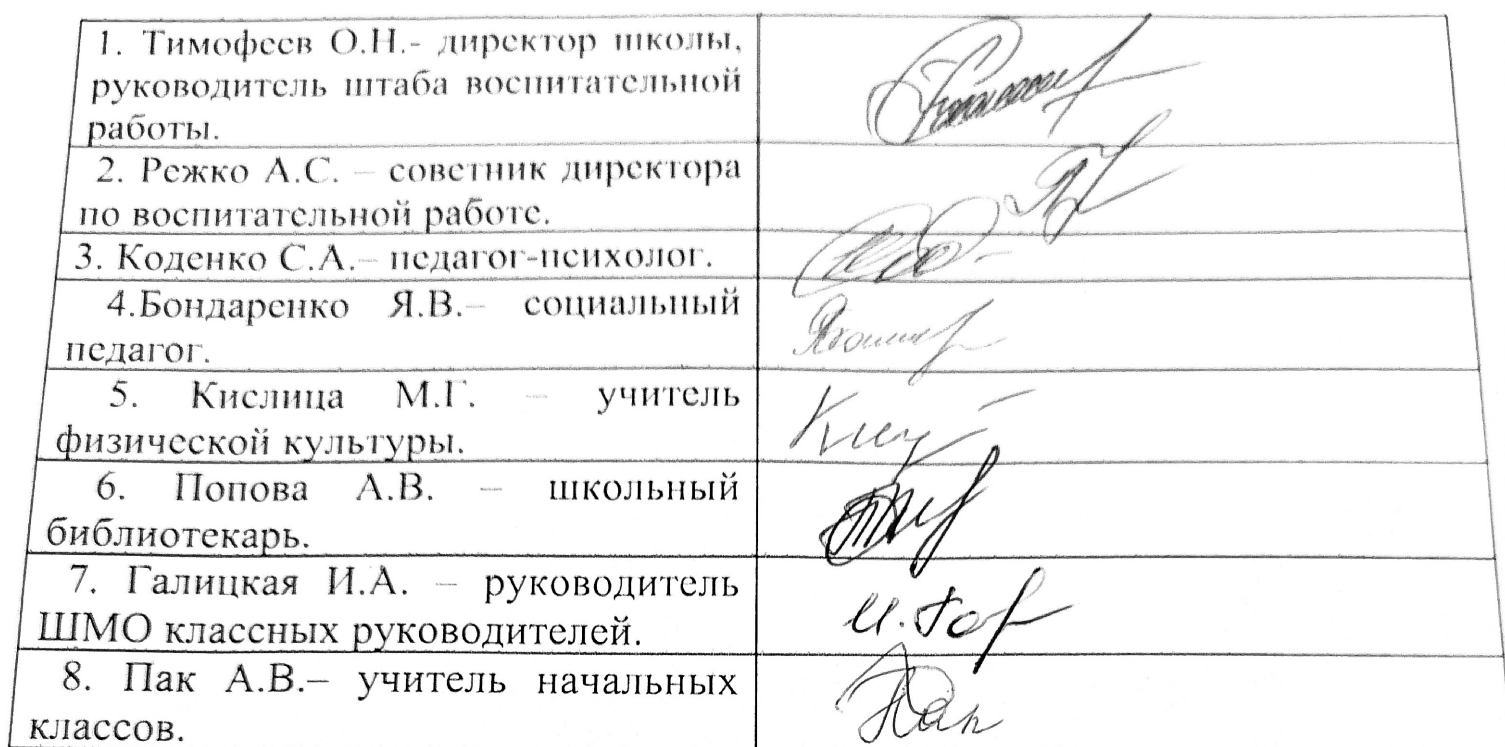 1. Тимофеев О.Н.- директор школы,
руководитель штаба воспитательной
работы.
2. Режко А.С. – советник директора
по воспитательной работе.
3. Коденко С.А.– педагог-психолог.
4.Бондаренко Я.В.– социальный
педагог.
5. Кислица М.Г. – учитель
физической культуры.
6. Попова А.В. – школьный
библиотекарь.
7. Галицкая И.А. – руководитель
ШМО классных руководителей.
8. Пак А.В.– учитель начальных
классов.
Пак